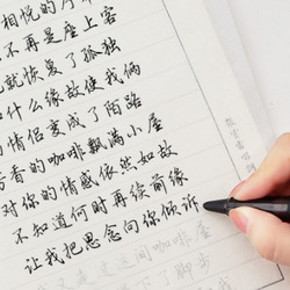 相悦的序
不再是座上客
就恢复了孤独
什么缘故使我俩
的情侣变成了陌路
香的咖啡飘满小屋
对你的情感依然如故
不知道何时再续前缘
让我把思念向你倾诉
又是走近这间咖啡屋
了脚步